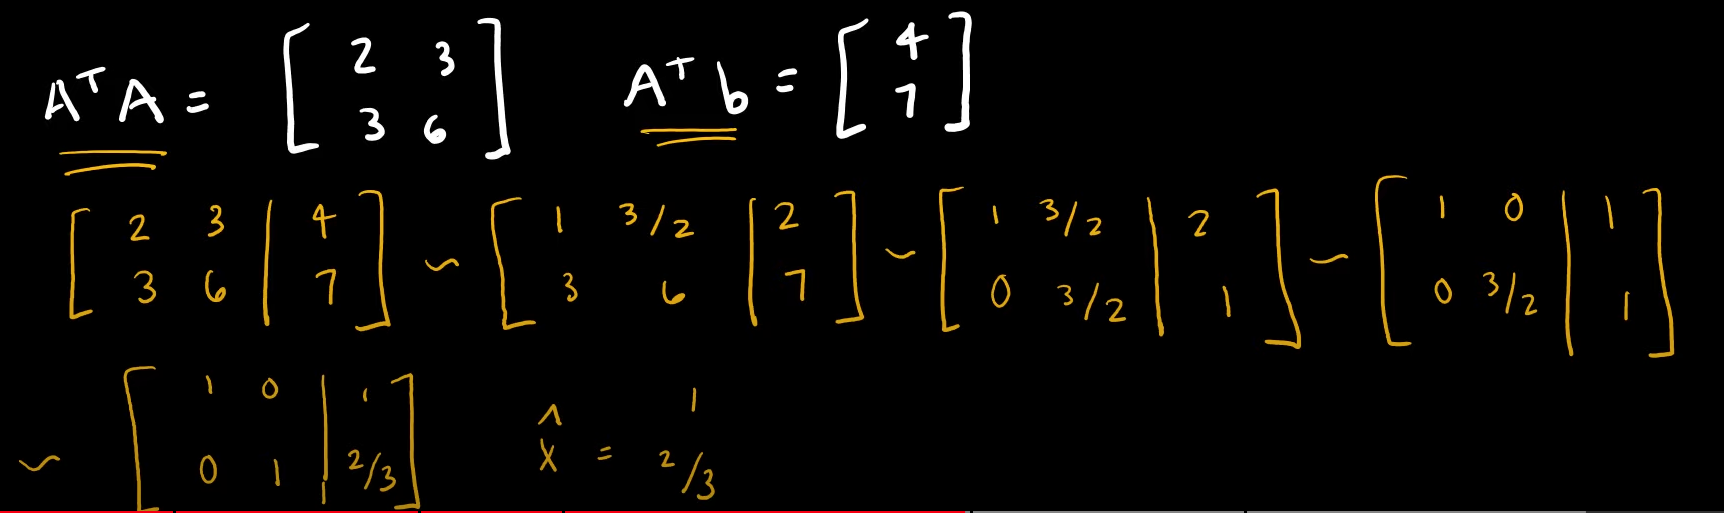 AᵀA = [ 2 3 ; 3 6 ] Aᵀb = [ 4 ; 7 ]
[ 2 3 | 4 ; 3 6 | 7 ] ~ [ 1 3/2 | 2 ; 3 6 | 7 ] ~ [ 1 3/2 | 2 ; 0 3/2 | 1 ] ~ [ 1 0 | 1 ; 0 3/2 | 1 ]
~ [ 1 0 | 1 ; 0 1 | 2/3 ] x̂ = 1 ; 2/3